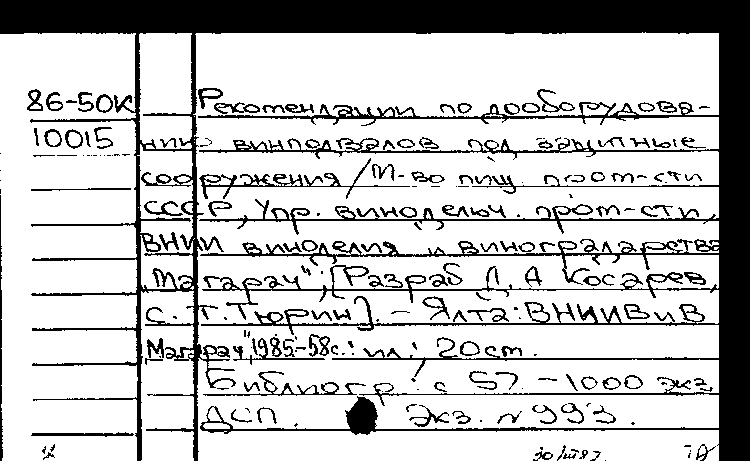 86-50К Рекомендации по дооборудова-
10015 нию винподвалов под защитные
сооружения / М-во пищ. пром-сти
СССР, Упр. винодельч. пром-сти,
ВНИИ виноделия и виноградарства
"Магарач"; [Разраб Л. А Косарев,
С. П. Тюрин]. - Ялта: ВНИИВиВ
"Магарач", 1985.-58с.: ил.; 20см.
Библиогр.: с 57. - 1000 экз.
ДСП. Экз. N 993.